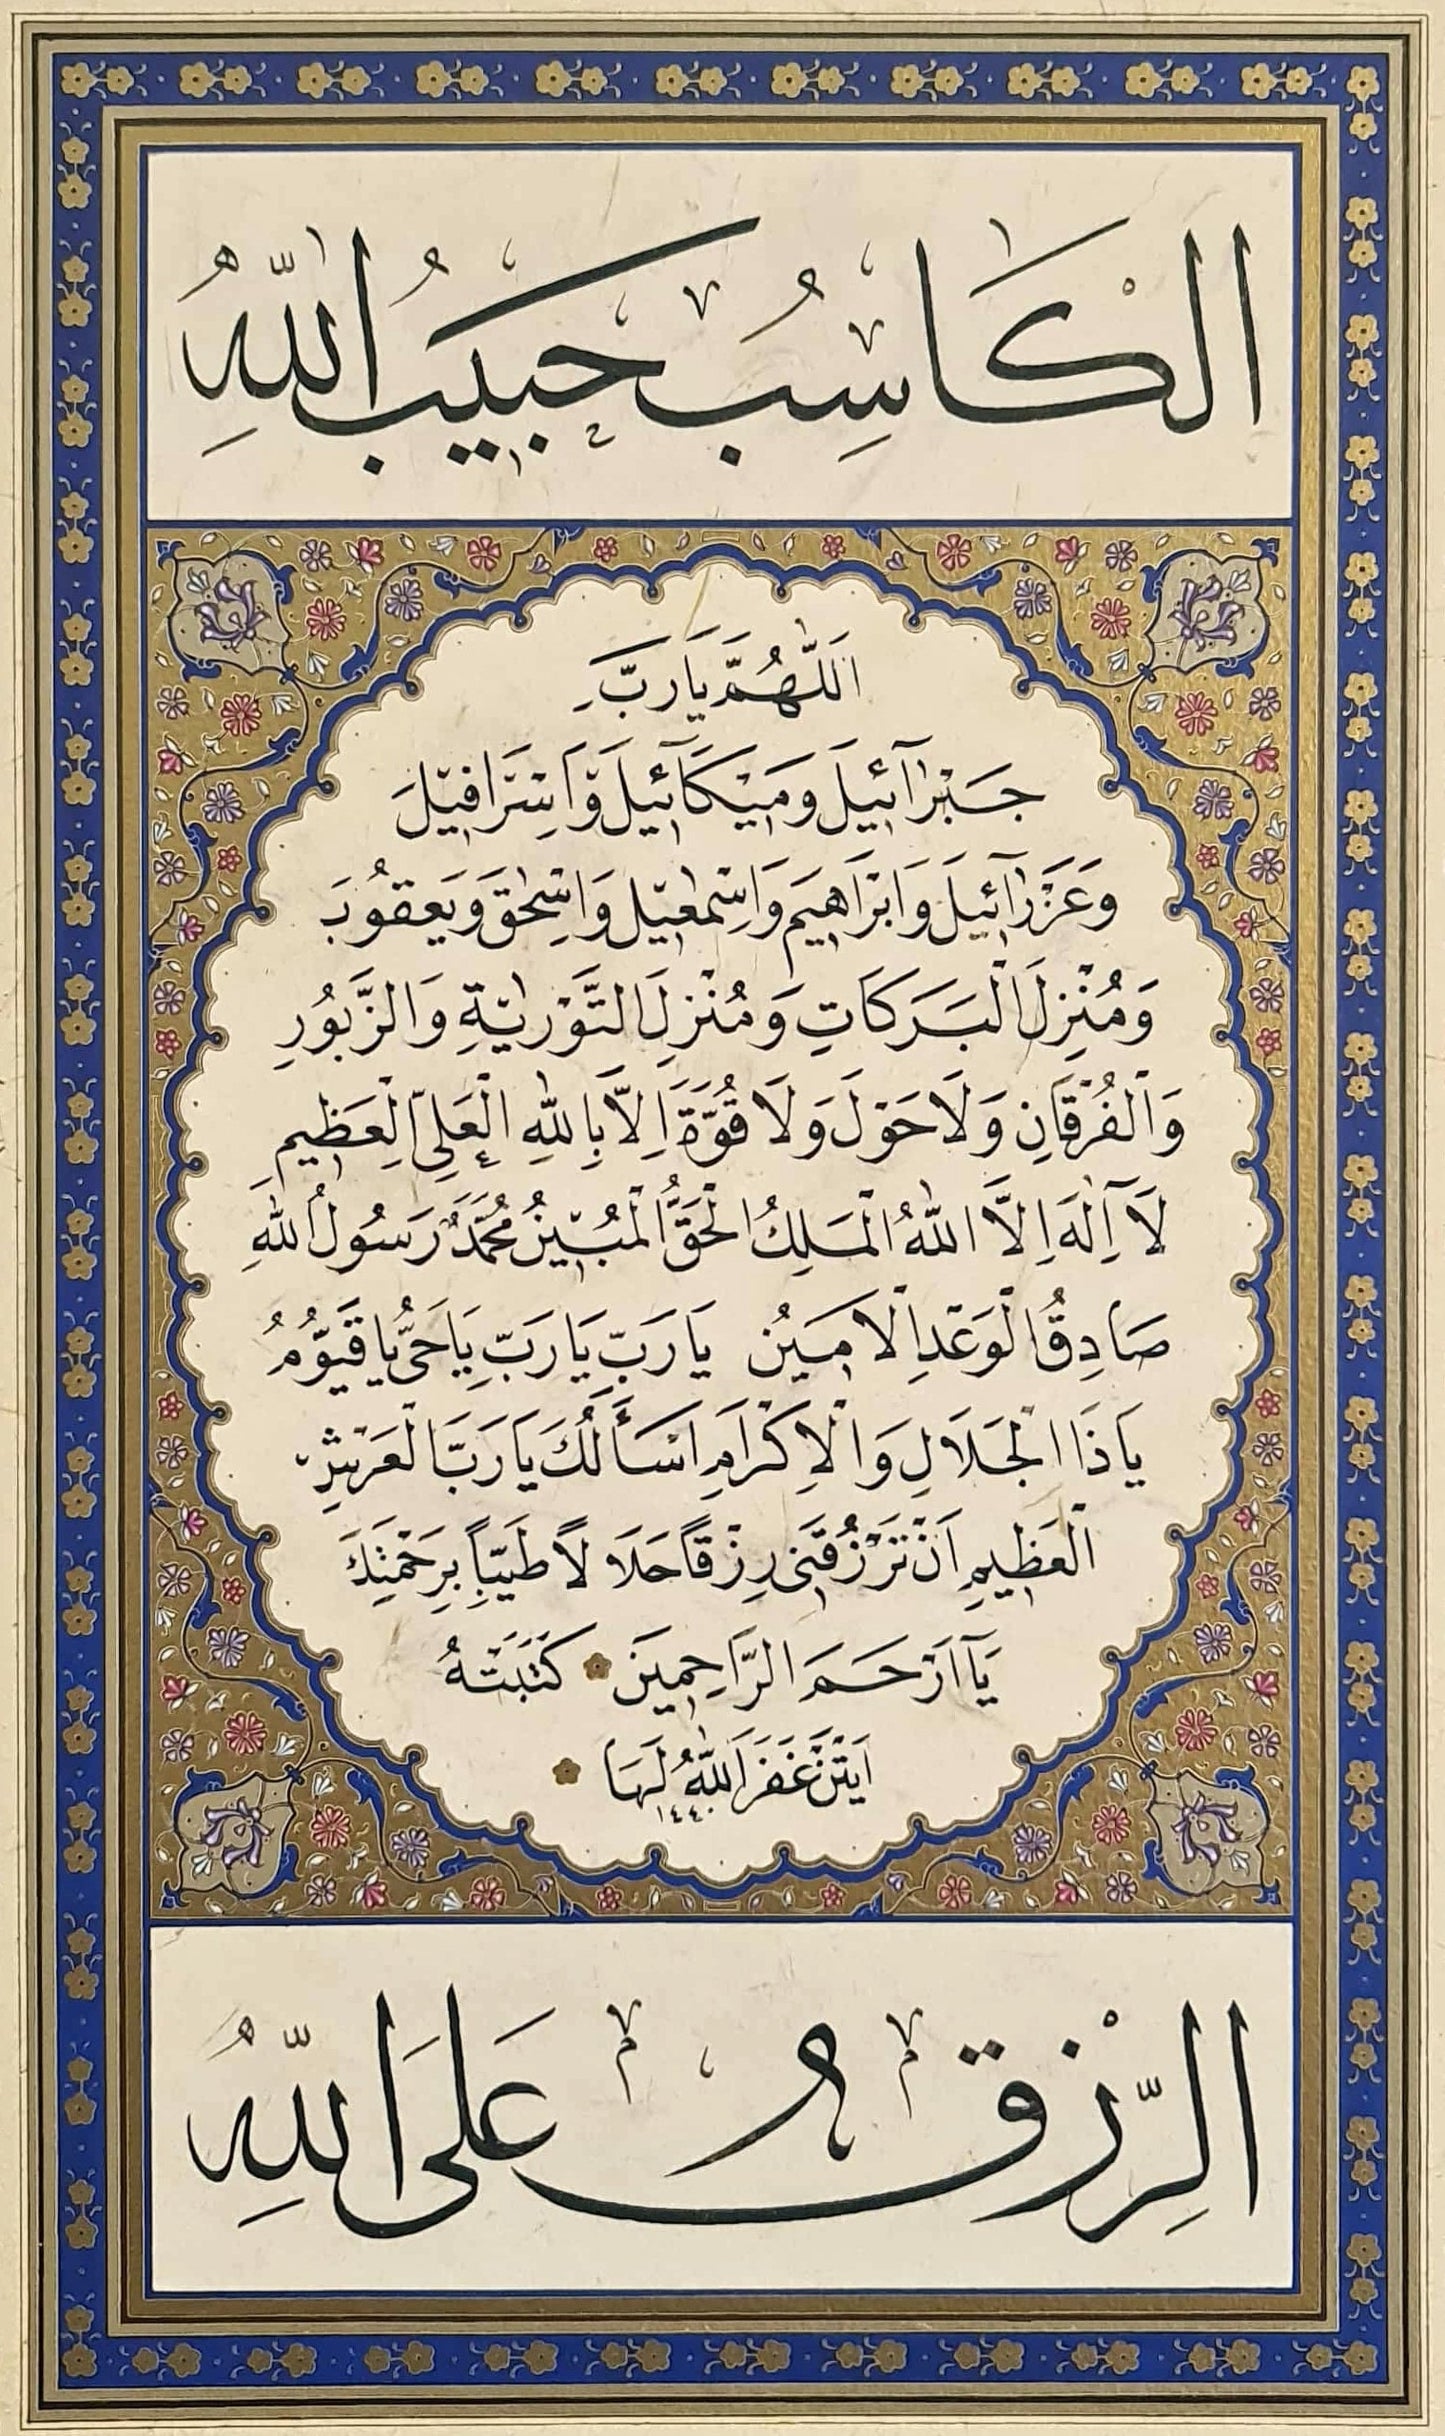 الْكَاسِبُ حَبِيبُ اللّٰهِ
اَللّٰهُمَّ يَارَبَّ
جَبْرَآئِيلَ وَمِيْكَآئِيلَ وَاَسِْرَافِيْلَ
وَعَزْرَآئِيلَ وَاِبْرَاهِيمَ وَاِسْمٰعِيْلَ وَاِسْحٰقَ وَيَعْقُوبَ
وَمُنْزِلَ الْبَرَكَاتِ وَمُنْزِلَ التَّوْرٰيةِ وَالزَّبُورِ
وَالْفُرْقَانِ وَلَا حَوْلَ وَلَا قُوَّةَ اِلَّا بِاللّٰهِ الْعَلِيِّ الْعَظِيمِ
لَآ اِلٰهَ اِلَّا اللّٰهُ الْمَلِكُ الْحَقُّ الْمُبِيْنُ مُحَمَّدٌ رَسُولُ اللّٰهِ
صَادِقُ الْوَعْدِ الْاَمِيْنُ يَارَبِّ يَارَبِّ يَاحَيُّ يَا قَيُّوْمُ
يَاذَا الْجَلَالِ وَالْاِكْرَامِ اَسْأَلُكَ يَارَبَّ الْعَرْشِ
الْعَظِيمِ اَنْ تَرْزُقَنِى رِزْقًا حَلَالًا طَيِّبًا بِرَحْمَتِكَ
يَآاَرْحَمَ الرَّاحِمِينَ كَتَبَتْهُ
اَيْتَنْ غَفَرَ اللّٰهُ لَهَا
١٤٤٠
الرِّزْقُ عَلَى اللّٰهِ